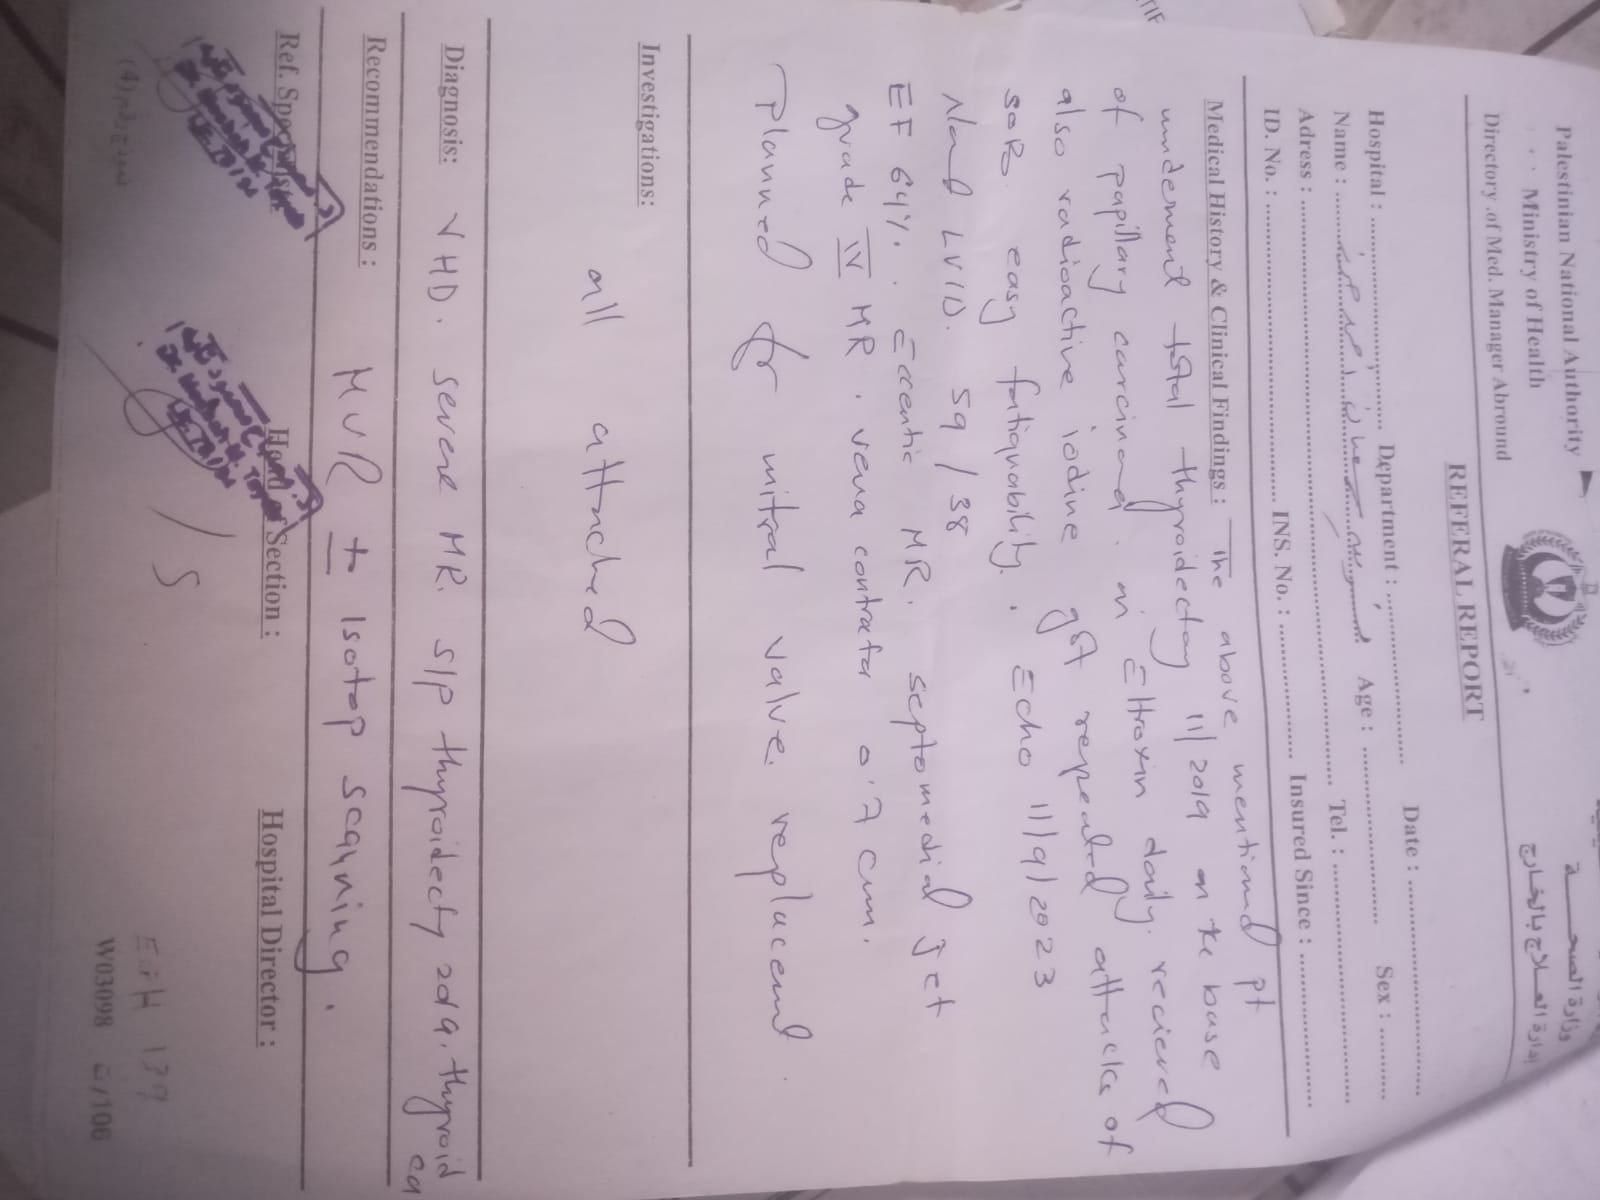 Palestinian National Authority
Ministry of Health
Directory .of Med. Manager Abround
وزارة الصحـــــة
إدارة العـــلاج بالخارج
REFERAL REPORT
Date : ....................
Hospital : .................... Department : .................... Age : .................... Sex : ..........
Name :
Adress : .................... Tel. : ....................
ID. No. : .................... INS. No. : .................... Insured Since : ....................
Medical History & Clinical Findings : The above mentiond pt
underwent total thyroidectoy 11/2019 on the base
of papillary carcinoma. on Eltroxin daily. recieved
also radioactive iodine got repeated attacks of
SOB easy fatiguability. Echo 11/9/2023
LVID. 59/38
EF 64%. Eccentric MR. septomedial jet
grade IV MR. vena contrata 0.7 cm.
Planned for mitral valve replacement.
Investigations:
all attached
Diagnosis: VHD. severe MR. S/P thyroidecty 2019. thyroid ca
Recommendations : MVR ± Isotop scanning.
Ref. Specialist
Head of Section :
Hospital Director :
EGH 139
W03098